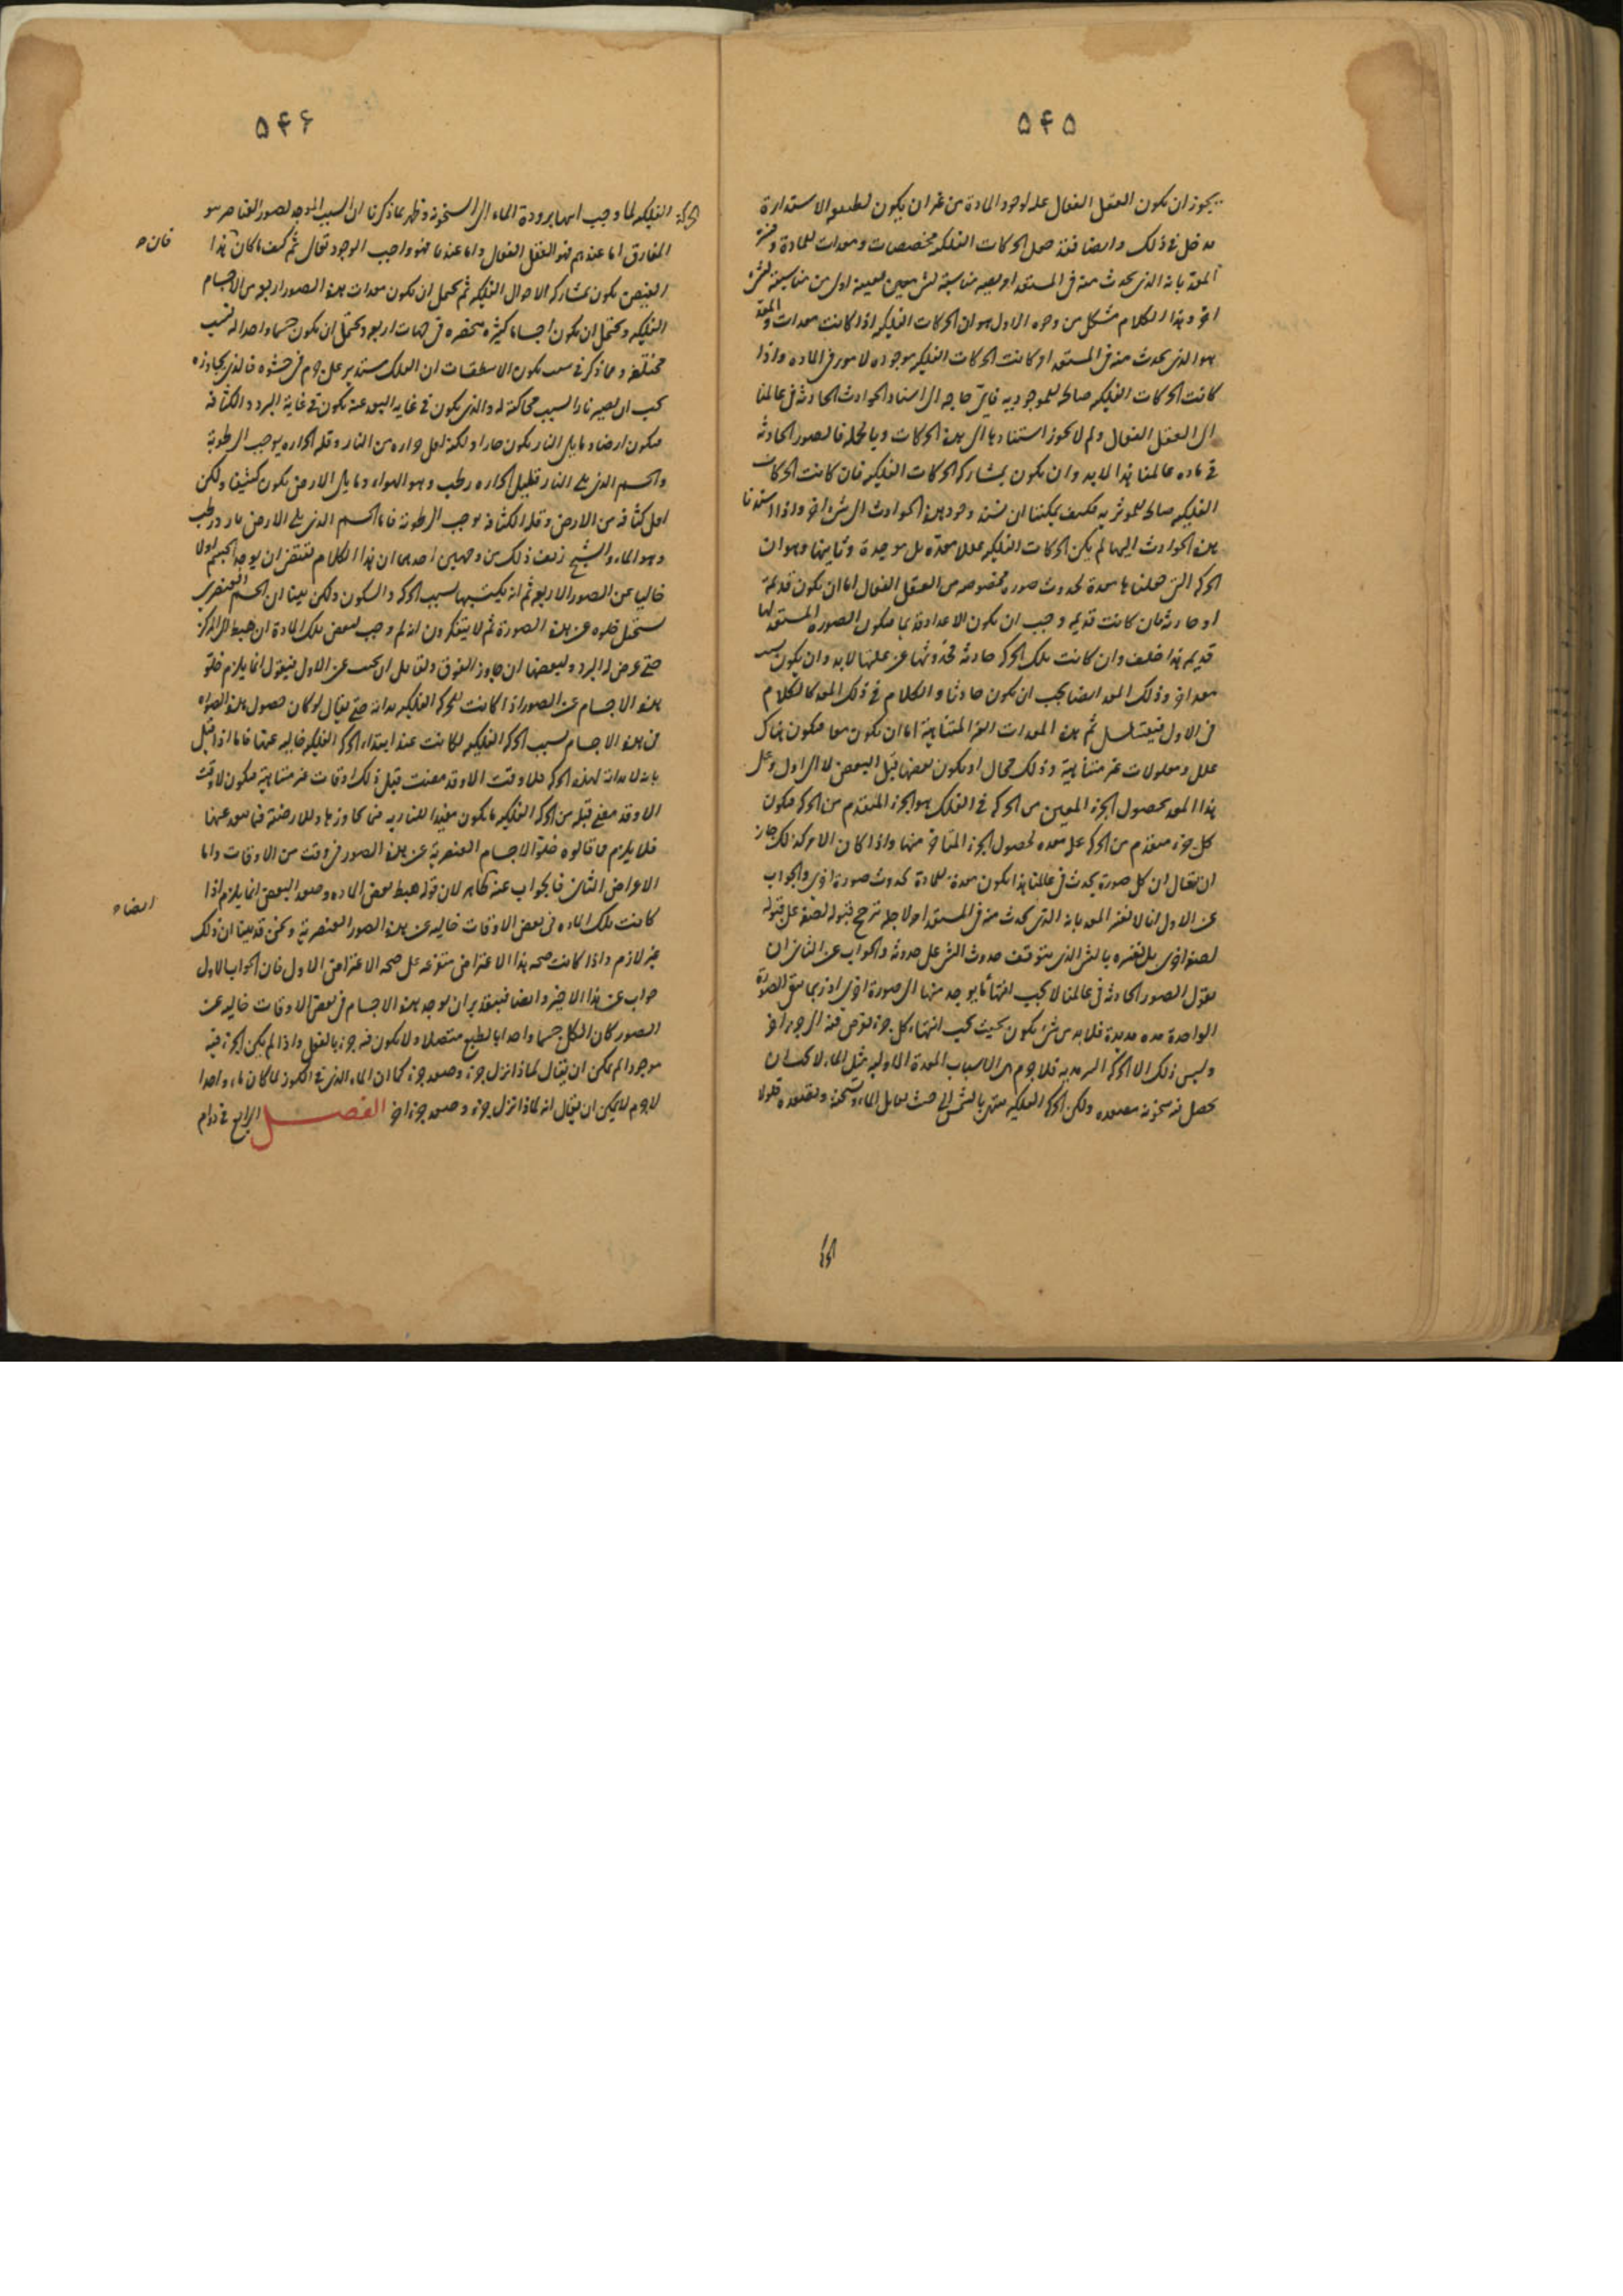 ۵۴۵
يجوز ان يكون العقل الفعال علة لوجود المادة من غير ان يكون لطبيعة الاستدارة
مدخل فى ذلك وايضا فقد جعل الحركات الفلكية مخصصات ومعدات للمادة وفسر
المعد بانه الذى يحدث منه فى المستعد امر يصير مناسبته لشئ معين بعينه اولى من مناسبته لشئ
اخر وهذا الكلام مشكل من وجوه الاول هو ان الحركات الفلكية اذا كانت معدات والمعد
هو الذى يحدث منه فى المستعد امر كانت الحركات الفلكية موجودة لامور فى المادة واذا
كانت الحركات الفلكية صالحة للموجودية فاى حاجة الى اسناد الحوادث الحادثة فى عالمنا
الى العقل الفعال ولم لا يجوز استنادها الى هذه الحركات وبالجملة فالصور الحادثة
فى مادة عالمنا هذا لابد وان يكون بمشاركة الحركات الفلكية فان كانت الحركات
الفلكية صالحة للموثرية فكيف يمكننا ان نسند وجود هذه الحوادث الى شئ اخر واذا اسندنا
هذه الحوادث اليها لم يكن الحركات الفلكية عللا معدة بل موجدة وثانيها وهو ان
الحركة التى جعلناها معدة لحدوث صورة مخصوصة من العقل الفعال اما ان تكون قديمة
او حادثة فان كانت قديمة وجب ان يكون الاعداد قديما فيكون الصورة المستعد لها
قديمة هذا خلف وان كانت تلك الحركة حادثة فحدوثها عن علتها لابد وان يكون بسبب
معد اخر وذلك المعد ايضا يجب ان يكون حادثا والكلام فى ذلك المعد كالكلام
فى الاول فيتسلسل ثم هذه المعدات الغير المتناهية اما ان يكون معا فيكون هناك
علل ومعلولات غير متناهية وذلك محال او يكون بعضها قبل البعض لا الى اول وعلى
هذا المعد لحصول الجزء المعين من الحركة فى الفلك هو الجزء المتقدم من الحركة فيكون
كل جزء متقدم من الحركة علة معدة لحصول الجزء المتاخر منها واذا كان الامر كذلك جاز
ان يقال ان كل صورة يحدث فى عالمنا هذا يكون معدة للمادة لحدوث صورة اخرى والجواب
عن الاول انا لا نفسر المعد بانه الذى يحدث منه فى المستعد امر لاجله ترجح قبوله لصفة على قبوله
لصفة اخرى بل نفسره بالشئ الذى يتوقف حدوث الشئ على حدوثه والجواب عن الثانى ان
نقول الصور الحادثة فى عالمنا لا يجب انتهاء ما يوجد منها الى صورة اخرى اذ ربما يبقى الصورة
الواحدة مدة مديدة فلابد من شئ يكون بحيث يجب انتهاء كل جزء يفرض فيه الى جزء اخر
وليس ذلك الا الحركة السرمدية فلا جرم هى الاسباب المعدة الماء لا يجب ان
يحصل فيه سخونة مصعدة ولكن الحركة الفلكية تنتهى بالشمس الى حيث يقابل الماء وتسخنه وتصعده فلولا
الحركة
۵۴۶
الحركة الفلكية لما وجب انتهاء برودة الماء الى السخونة وظهر بما ذكرنا ان السبب الموجد لصور العناصر هو
المفارق اما عندهم فهو العقل الفعال واما عندنا فهو واجب الوجود تعالى ثم كيف ما كان هذا
فان ح
الفيض يكون بمشاركة الاحوال الفلكية ثم يحتمل ان يكون معدات هذه الصور اربعة من الاجسام
الفلكية ويحتمل ان يكون اجساما كثيرة منحصرة فى جهات اربع ويحتمل ان يكون جسما واحدا له نسب
مختلفة ومما ذكر فى سبب تكون الاسطقسات ان الفلك مستدير على جرم فى حشوه فالذى يحاذيه
يجب ان يصير نارا لسبب محاكته له والذى يكون فى غاية البعد عنه يكون فى غاية البرد والكثافة
فيكون ارضا وما يلى النار يكون حارا ولكنه اقل حرارة من النار وقلة الحرارة يوجب الرطوبة
والجسم الذى يلى النار قليل الحرارة رطب وهو الهواء وما يلى الارض يكون كثيفا ولكن
اقل كثافة من الارض وقلة الكثافة يوجب الرطوبة فاما الجسم الذى يلى الارض بارد رطب
وهو الماء والشيخ زيف ذلك من وجهين احدهما ان هذا الكلام يقتضى ان يوجد الجسم اولا
خاليا عن الصور الاربعة ثم انه يكتسبها بسبب الحركة والسكون ولكن بينا ان الجسم العنصرى
يستحيل خلوه عن هذه الصورة ثم لا يتفكرون انه لم وجب لبعض تلك المادة ان هبط الى المركز
حتى عرض له البرد ولبعضها ان جاوز الفوق ولقائل ان يجيب عن الاول فيقول انما يلزم خلو
هذه الاجسام عن الصور اذا كانت للحركة الفلكية بداية حتى يقال لو كان حصول هذه الصور
فى هذه الاجسام بسبب الحركة الفلكية لكانت عند ابتداء الحركة الفلكية خالية عنها فاما اذا قيل
بانه لا بداية لهذه الحركة فلا وقت الا وقد مضت قبل ذلك اوقات غير متناهية فيكون لا وقت
الا وقد مضى قبله من الحركة الفلكية ما يكون مفيدا للنارية فيما يجاوزها وللارضية فيما بعد عنها
فلا يلزم مما قالوه خلو الاجسام العنصرية عن هذه الصور فى وقت من الاوقات واما
الاعتراض الثانى فالجواب عنه ظاهر لان قوله هبط بعض المادة وصعد البعض انما يلزم اذا
ايضا ح
كانت تلك المادة فى بعض الاوقات خالية عن هذه الصور العنصرية ونحن قد بينا ان ذلك
غير لازم واذا كانت صحة هذا الاعتراض متفرعة على صحة الاعتراض الاول فان الجواب الاول
جواب عن هذا الاخير وايضا فبتقدير ان يوجد هذه الاجسام فى بعض الاوقات خالية عن
الصور كان الكل جسما واحدا بالطبع متصلا ولا يكون فيه جزء بالفعل واذا لم يكن الجزء فيه
موجودا لم يمكن ان يقال لماذا نزل جزء وصعد جزء كما ان الماء الذى فى الكوز لما كان ماء واحدا
لا جرم لا يمكن ان يقال انه لماذا نزل جزء وصعد جزء اخر الفصل الرابع فى دوام